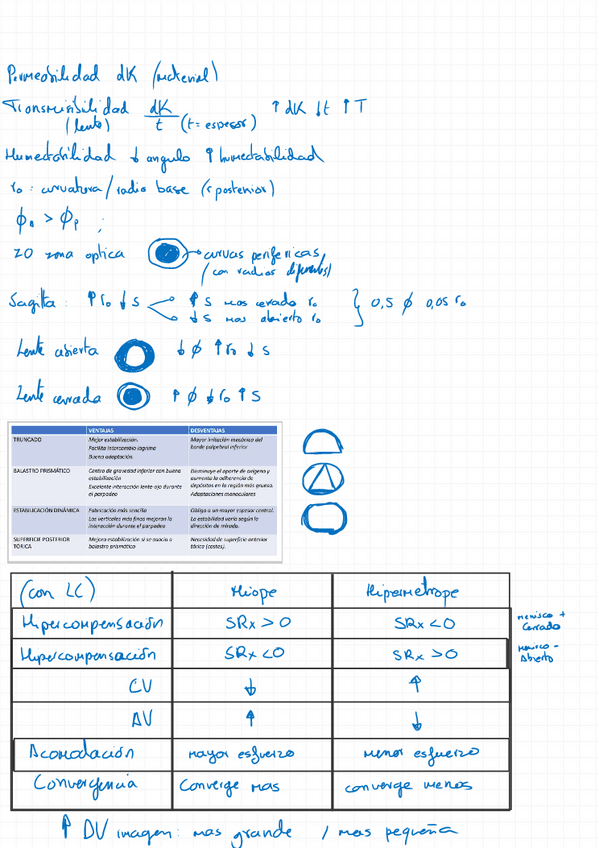 Permeabilidad dK (material)
Transmisibilidad dK/t ↑ dK ↓t ↑ T
(lente) (t= espesor)
Humectabilidad ↓ angulo ↑ humectabilidad
r₀ : curvatura / radio base (c posterior)
ϕ > ϕ ;
ZO zona optica → curvas perifericas
(con radios diferentes)
Sagita : ↑ r₀ ↓ s ↑ s mas cerrado r₀ } 0,5 ϕ 0,05 r₀
↓ s mas abierto r₀
Lente abierta ↓ ϕ ↑ r₀ ↓ s
Lente cerrada ↑ ϕ ↓ r₀ ↑ s
VENTAJAS DESVENTAJAS
TRUNCADO Mejor estabilización. Mayor irritación mecánica del
Facilita intercambio lagrima borde palpebral inferior
Buena adaptación.
BALASTRO PRISMÁTICO Centro de gravedad inferior con buena Disminuye el aporte de oxígeno y
estabilización aumenta la adherencia de
Excelente interacción lente-ojo durante depósitos en la región más gruesa.
el parpadeo Adaptaciones monoculares
ESTABILICACIÓN DINÁMICA Fabricación más sencilla Obliga a un mayor espesor central.
Los verticales más finos mejoran la La estabilidad varía según la
interacción durante el parpadeo dirección de mirada.
SUPERFICIE POSTERIOR Mejora estabilización si se asocia a Necesidad de superficie anterior
TÓRICA balastro prismático tórica (costes).
(con LC) Miope Hipermetrope
Hipercompensación SRx > 0 SRx < 0 menisco + Cerrado
Hipercompensación SRx < 0 SRx > 0 menisco - Abierto
CV ↓ ↑
AV ↑ ↓
Acomodación mayor esfuerzo menor esfuerzo
Convergencia Converge mas converge menos
↑ DV imagen: mas grande / mas pequeña